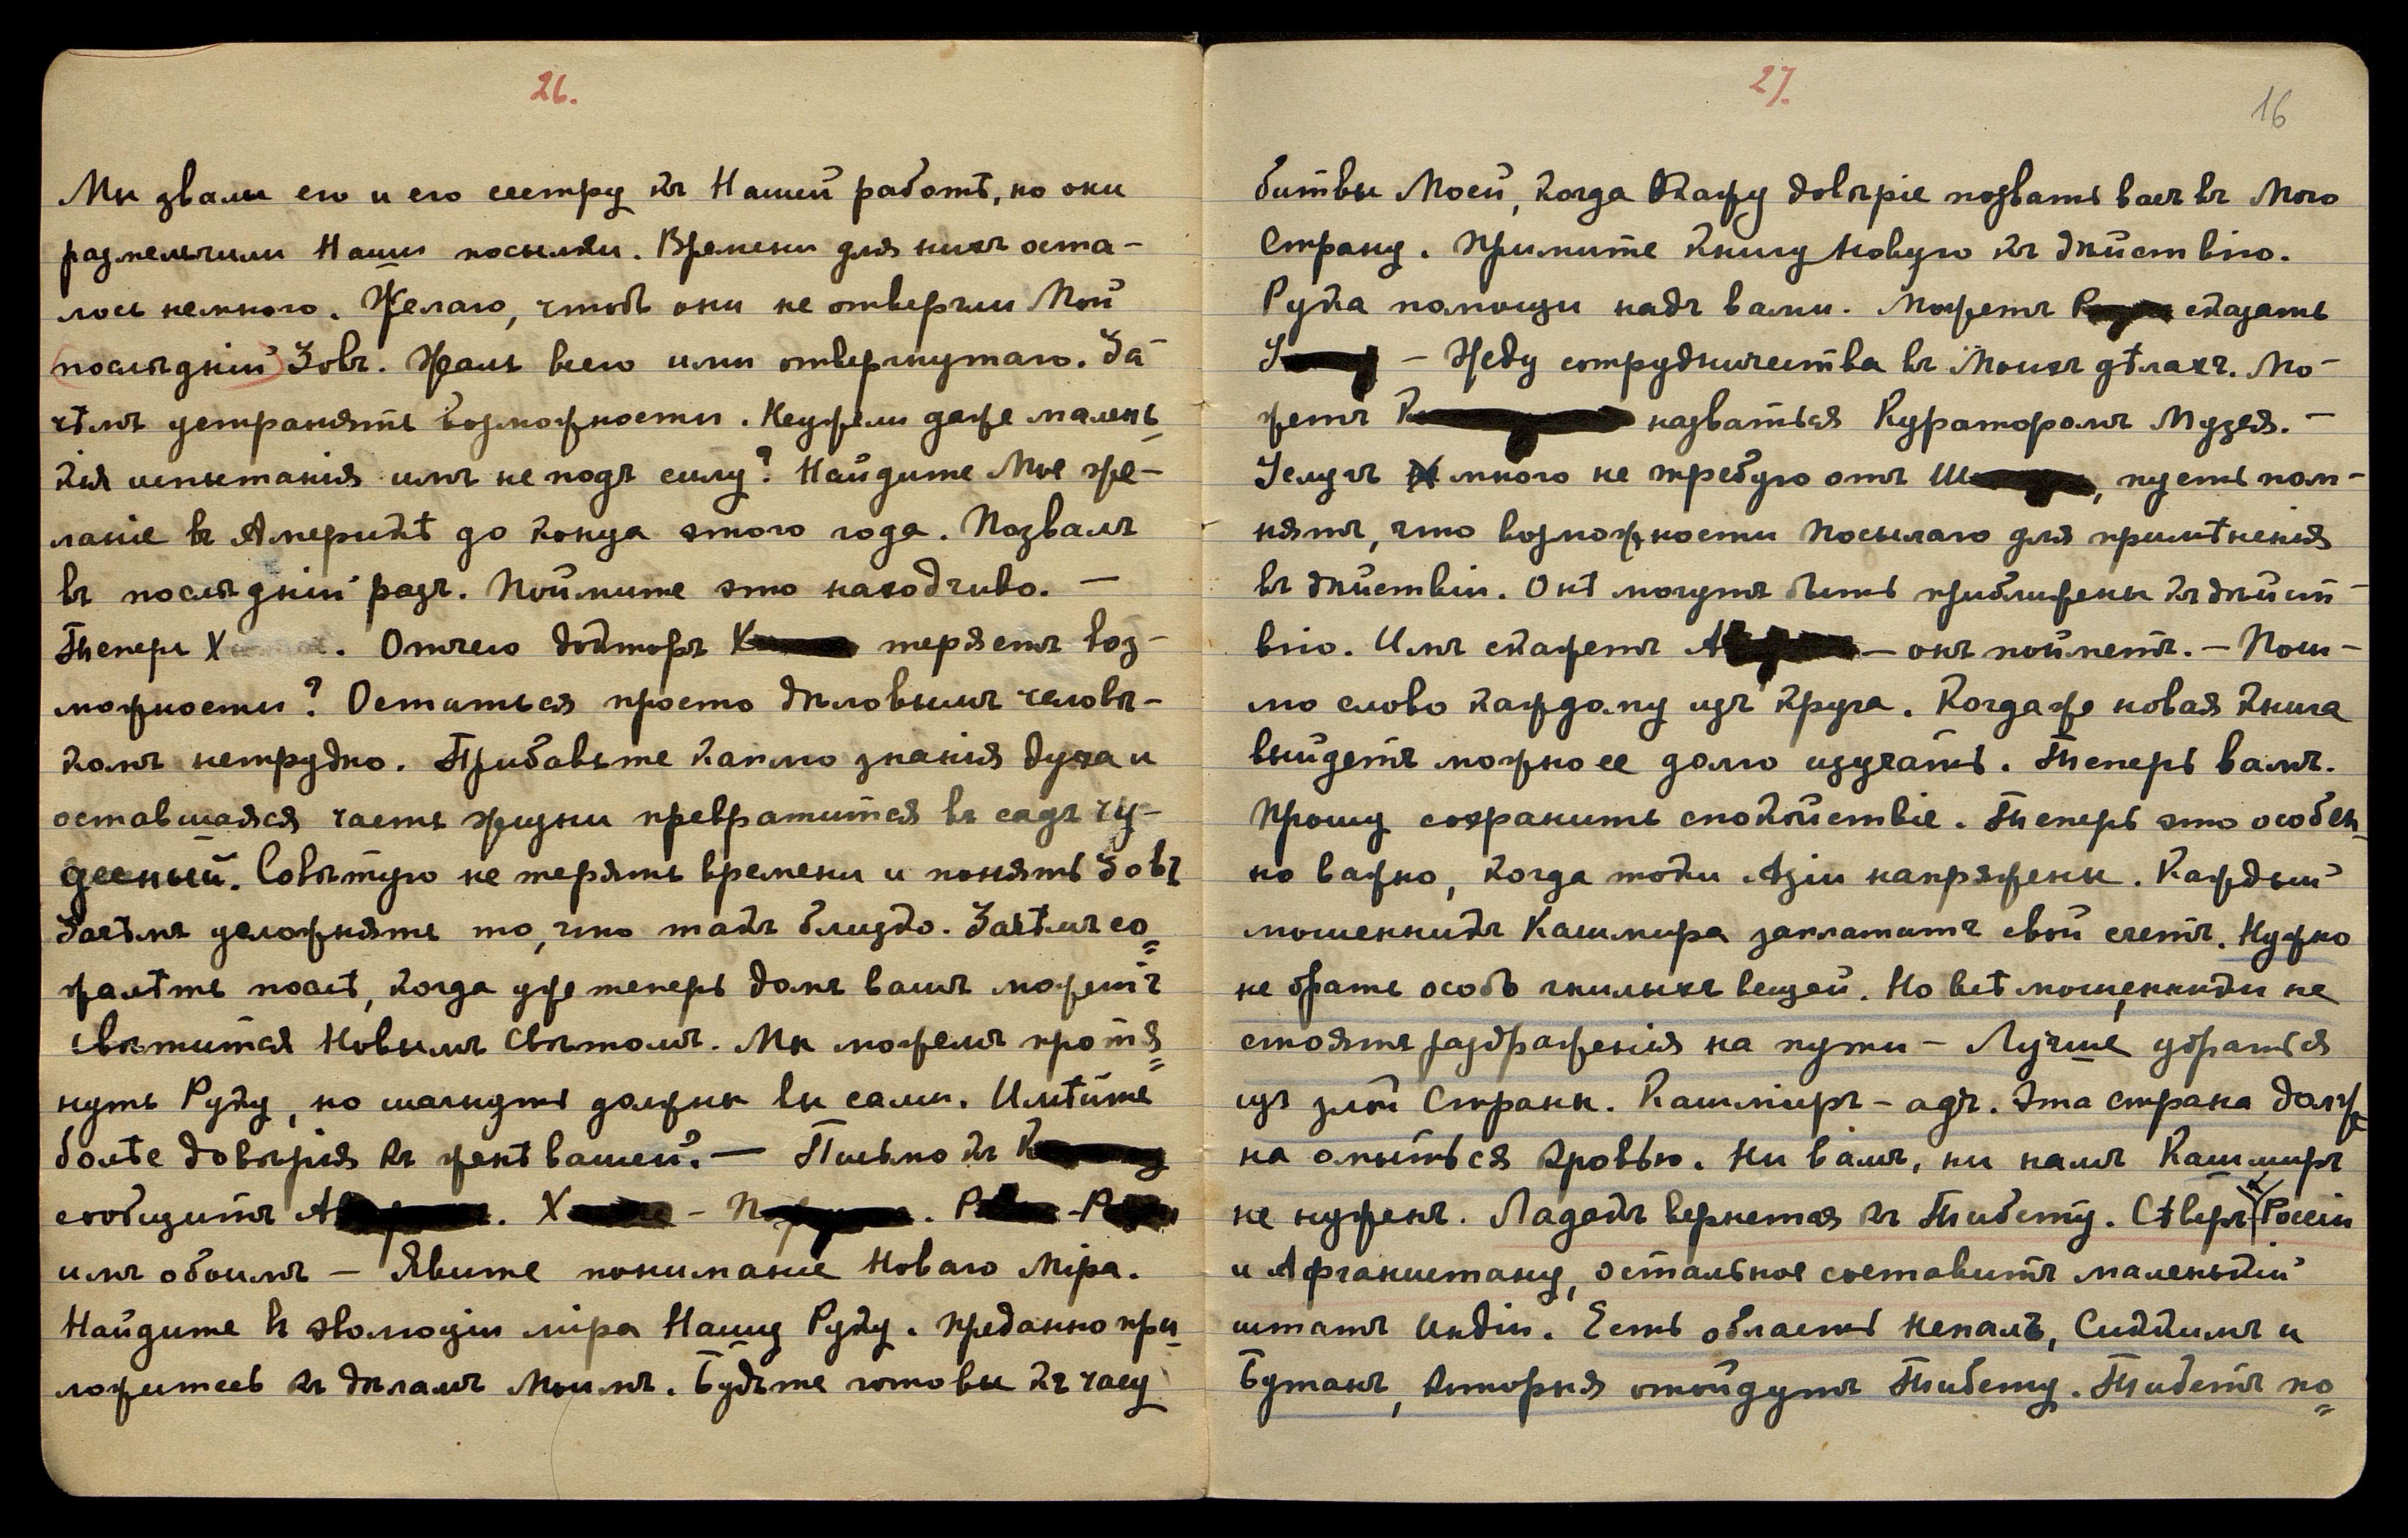 26.
Мы звали его и его сестру къ Нашей работѣ, но они
размельчили Наши посылки. Времени для нихъ оста-
лось немного. Желаю, чтобъ они не отвергли Мой
(послѣдній) Зовъ. Жаль всего ими отвергнутаго. За-
чѣмъ устранять возможности. Неужели даже малень-
кія испытанія имъ не подъ силу? Найдите Мое же-
ланіе въ Америкѣ до конца этого года. Позвалъ
въ послѣдній разъ. Поймите это находчиво. —
Теперь Х. Отчего докторъ К теряетъ воз-
можности? Остаться просто дѣловымъ человѣ-
комъ нетрудно. Прибавьте каплю знанія духа и
оставшаяся часть жизни превратится въ садъ чу-
десный. Совѣтую не терять времени и понять Зовъ
Зачѣмъ усложнять то, что такъ близко. Зачѣмъ со=
жалѣть послѣ, когда уже теперь домъ вашъ можетъ
свѣтиться Новымъ Свѣтомъ. Мы можемъ протя=
нуть Руку, но шагнуть должны вы сами. Имѣйте
болѣе довѣрія къ женѣ вашей. — Письмо къ К
сообщитъ А. Х - П. Р - Р
имъ обоимъ — Явите пониманіе Новаго Міра.
Найдите въ эволюціи міра Нашу Руку. Преданно при-
ложитесь къ дѣламъ Моимъ. Будьте готовы къ часу
27.
16
битвы Моей, когда Окажу довѣріе позвать васъ въ Мою
Страну. Примите книгу Новую къ дѣйствію.
Рука помощи надъ вами. Можетъ Р сказать
У — Жду сотрудничества въ Моихъ дѣлахъ. Мо-
жетъ К назваться Кураторомъ Музея. —
Услугъ много не требую отъ Ш, пусть пом-
нятъ, что возможности Посылаю для примѣненія
въ дѣйствіи. Онѣ могутъ быть приближены къ дѣйст-
вію. Имъ скажетъ А — онъ пойметъ. — Пош-
лю слово каждому изъ круга. Когда же новая книга
выйдетъ можно ее долго изучать. Теперь вамъ.
Прошу сохранить спокойствіе. Теперь это особен-
но важно, когда токи Азіи напряжены. Каждый
мошенникъ Кашмира заплатитъ свой счетъ. Нужно
не брать особо гнилыхъ вещей. Но всѣ мошенники не
стоятъ раздраженія на пути — Лучше убраться
изъ злой Страны. Кашмиръ — адъ. Эта страна долж-
на омыться кровью. Ни вамъ, ни намъ Кашмиръ
не нуженъ. Ладакъ вернется къ Тибету. Сѣверъ къ Россіи
и Афганистану, остальное составитъ маленькій
штатъ Индіи. Есть области Непалъ, Сиккимъ и
Бутанъ, которыя отойдутъ Тибету. Тибетъ по=